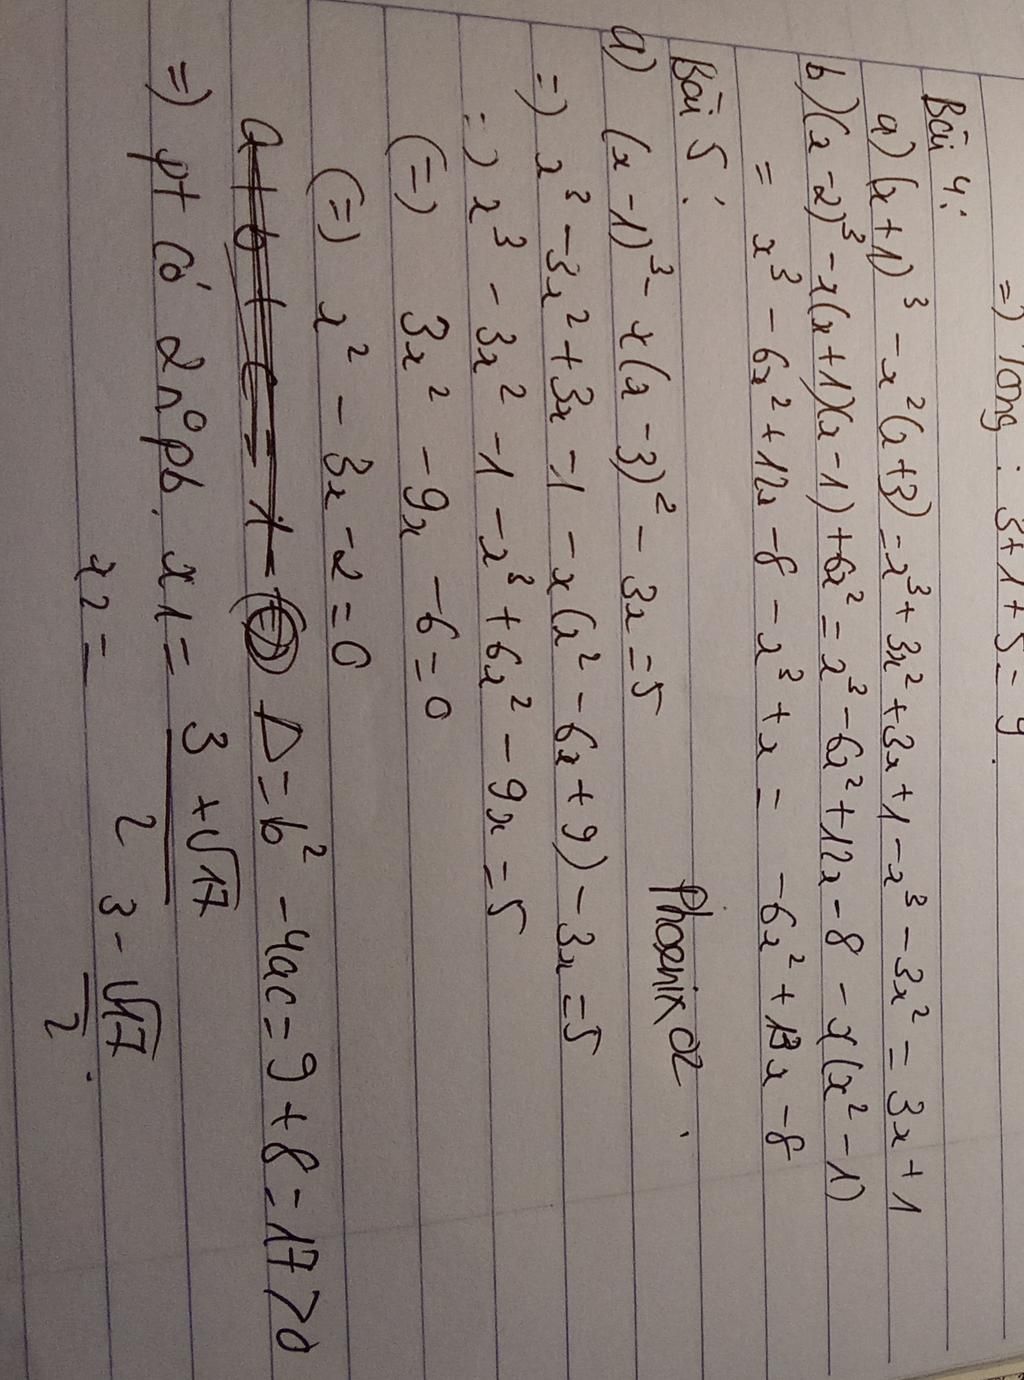 =) Tổng : 3+1+5 = 9.
Bài 4:
a) (x+1)³ - x²(x+3) = x³ + 3x² + 3x + 1 - x³ - 3x² = 3x + 1
b) (x-2)³ - x(x+1)(x-1) + 6x² = x³ - 6x² + 12x - 8 - x(x² - 1)
= x³ - 6x² + 12x - 8 - x³ + x = -6x² + 13x - 8
Bài 5:
Phoenix02.
a) (x-1)³ - x(x-3)² - 3x = 5
=) x³ - 3x² + 3x - 1 - x(x² - 6x + 9) - 3x = 5
=) x³ - 3x² - 1 - x³ + 6x² - 9x = 5
(=) 3x² - 9x - 6 = 0
(=) x² - 3x - 2 = 0
Δ = b² - 4ac = 9 + 8 = 17 > 0
=) pt có 2 n⁰ pb. x1 = (3 + √17)/2
x2 = (3 - √17)/2.